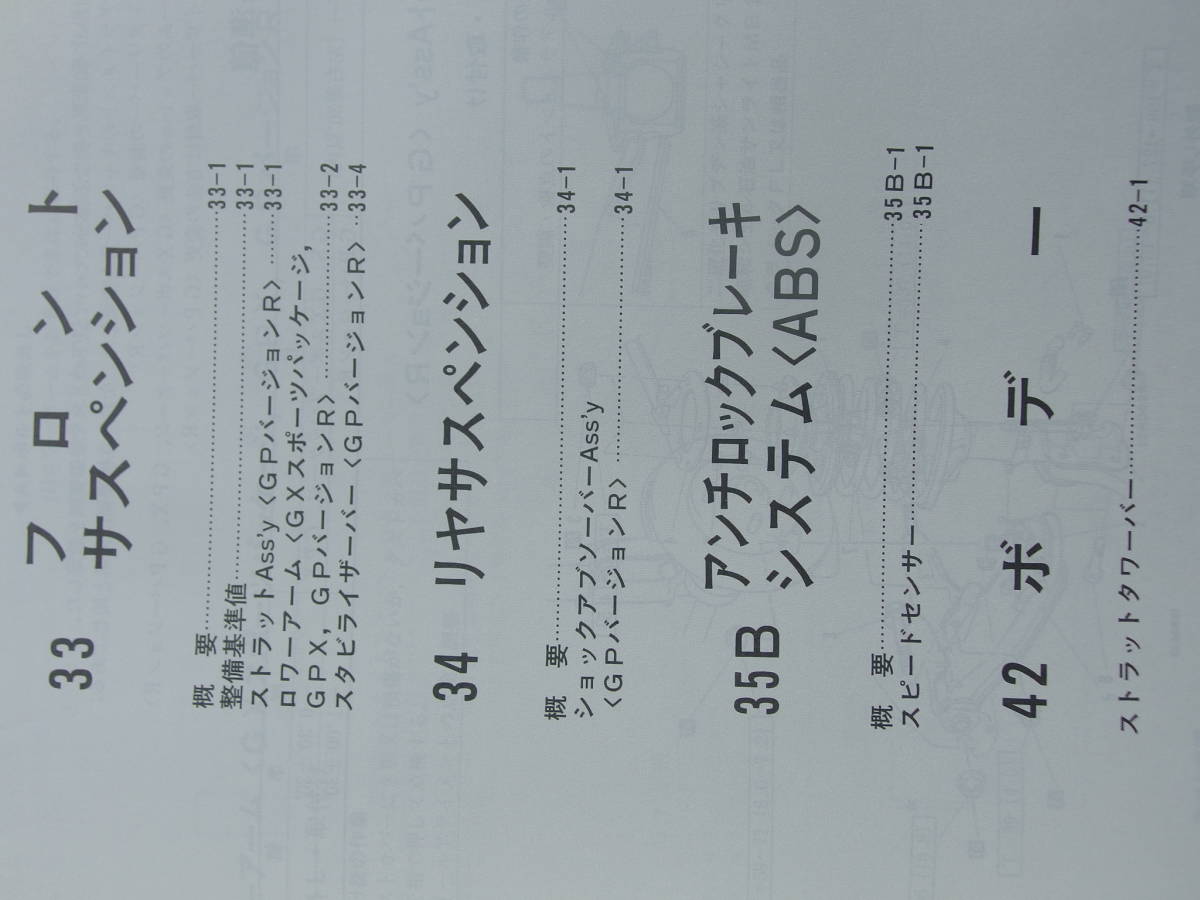 33 フロント
サスペンション
概 要……33-1
整備基準値……33-1
ストラットAss'y〈GPバージョンR〉……33-1
ロワーアーム〈GXスポーツパッケージ,
GPX, GPバージョンR〉……33-2
スタビライザーバー〈GPバージョンR〉……33-4
34 リヤサスペンション
概 要……34-1
ショックアブソーバーAss'y
〈GPバージョンR〉……34-1
35B アンチロックブレーキ
システム〈ABS〉
概 要……35B-1
スピードセンサー……35B-1
42 ボデー
ストラットタワーバー……42-1